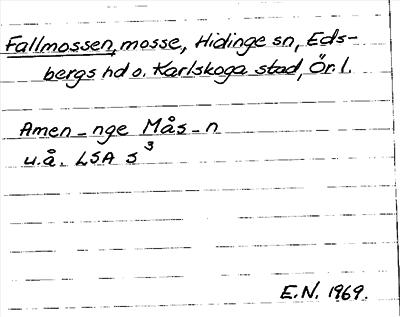 Fallmossen, mosse, Hidinge sn, Eds-
bergs hd o. Karlskoga stad, Ör. l.
Amen_nge Mås_n
u.å. LSA S³
E.N. 1969.